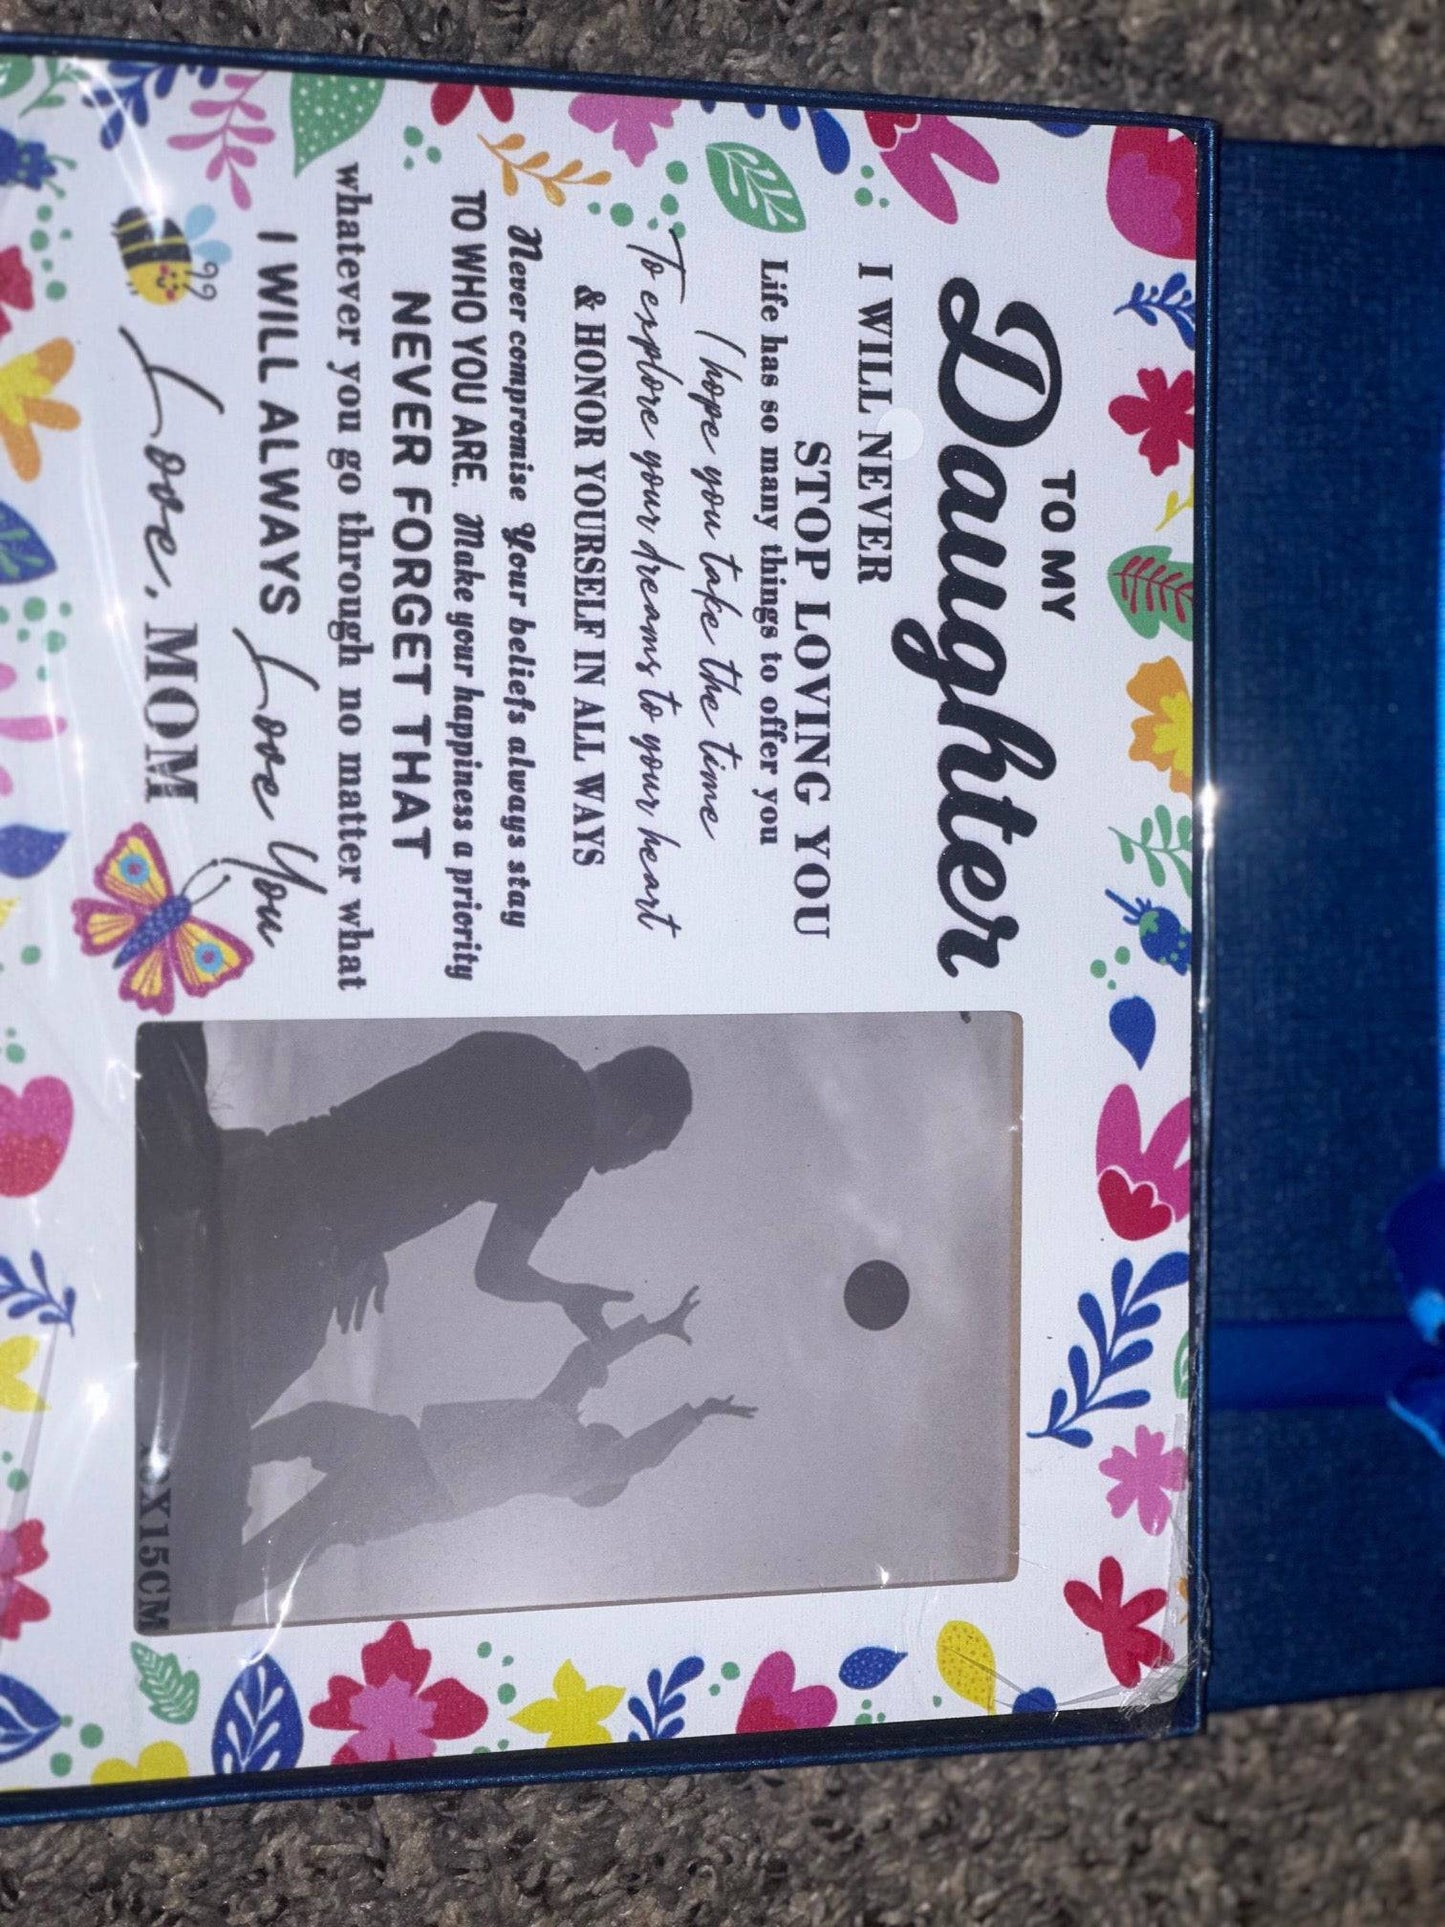 TO MY
Daughter
I WILL NEVER
STOP LOVING YOU
Life has so many things to offer you
I hope you take the time
To explore your dreams to your heart
& HONOR YOURSELF IN ALL WAYS
Never compromise Your beliefs always stay
TO WHO YOU ARE. Make your happiness a priority
NEVER FORGET THAT
whatever you go through no matter what
I WILL ALWAYS Love You
Love, MOM
X15CM